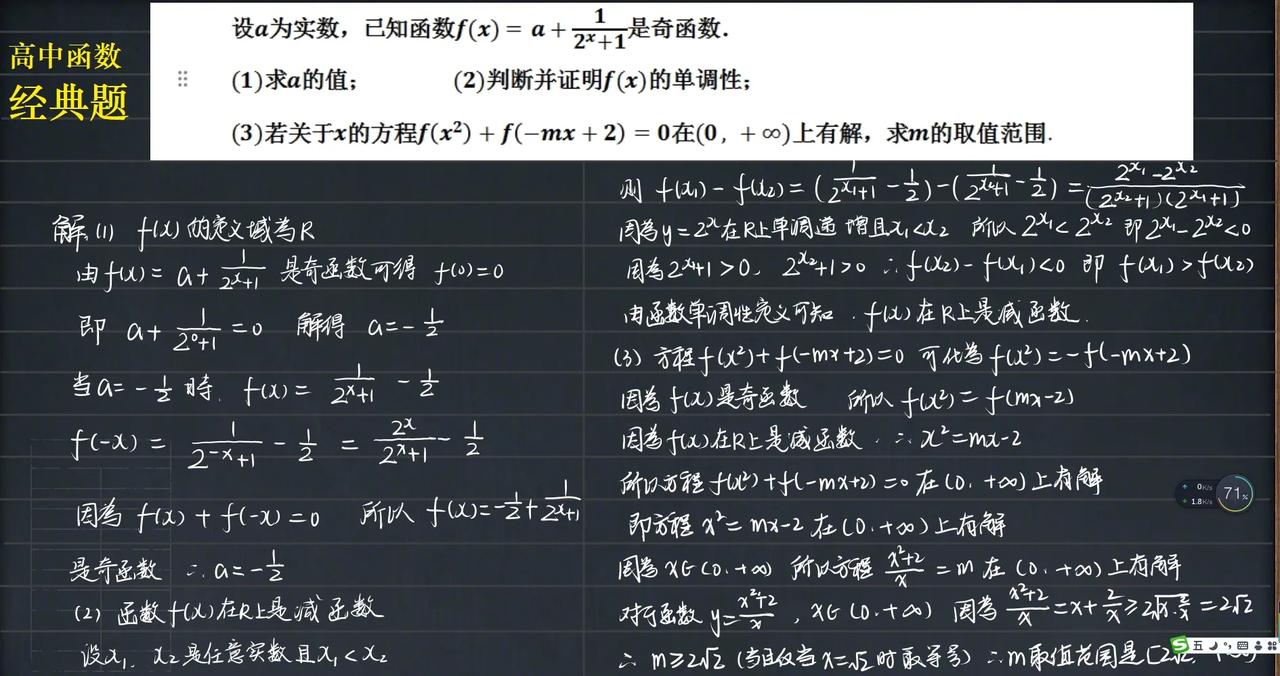 高中函数
经典题
设a为实数，已知函数f(x) = a + \frac{1}{2^x+1}是奇函数.
(1)求a的值； (2)判断并证明f(x)的单调性；
(3)若关于x的方程f(x²) + f(−mx + 2) = 0在(0，+∞)上有解，求m的取值范围.
解(1) f(x)的定义域为R
由f(x) = a + \frac{1}{2^x+1} 是奇函数可得 f(0)=0
即 a + \frac{1}{2^0+1} = 0 解得 a = -\frac{1}{2}
当a = -\frac{1}{2} 时. f(x) = \frac{1}{2^x+1} - \frac{1}{2}
f(-x) = \frac{1}{2^{-x}+1} - \frac{1}{2} = \frac{2^x}{2^x+1} - \frac{1}{2}
因为 f(x) + f(-x) = 0 所以 f(x) = -\frac{1}{2} + \frac{1}{2^x+1}
是奇函数 ∴ a = -\frac{1}{2}
(2) 函数f(x)在R上是减函数
设x₁、x₂是任意实数且x₁<x₂
则 f(x₁) - f(x₂) = (\frac{1}{2^{x₁}+1} - \frac{1}{2}) - (\frac{1}{2^{x₂}+1} - \frac{1}{2}) = \frac{2^{x₁}-2^{x₂}}{(2^{x₂}+1)(2^{x₁}+1)}
因为y=2^x在R上单调递增且x₁<x₂ 所以 2^{x₁}<2^{x₂} 即2^{x₁}-2^{x₂}<0
因为2^{x₁}+1>0、2^{x₂}+1>0 ∴ f(x₂)-f(x₁)<0 即 f(x₁)>f(x₂)
由函数单调性定义可知. f(x)在R上是减函数.
(3) 方程f(x²)+f(-mx+2)=0 可化为 f(x²)=-f(-mx+2)
因为 f(x)是奇函数 所以 f(x²)= f(mx-2)
因为f(x)在R上是减函数. ∴ x²=mx-2
所以方程 f(x²)+f(-mx+2)=0 在(0. +∞)上有解
即方程 x²=mx-2 在(0. +∞)上有解
因为 x∈(0. +∞) 所以方程 \frac{x²+2}{x} = m 在(0. +∞)上有解
对于函数 y=\frac{x²+2}{x}, x∈(0. +∞) 因为\frac{x²+2}{x}=x+\frac{2}{x}≥2\sqrt{x·\frac{2}{x}}=2√2
∴ m≥2√2 (当且仅当x=√2时取等号) ∴m取值范围是[2√2.
0K/s
1.8K/s
71%
S五